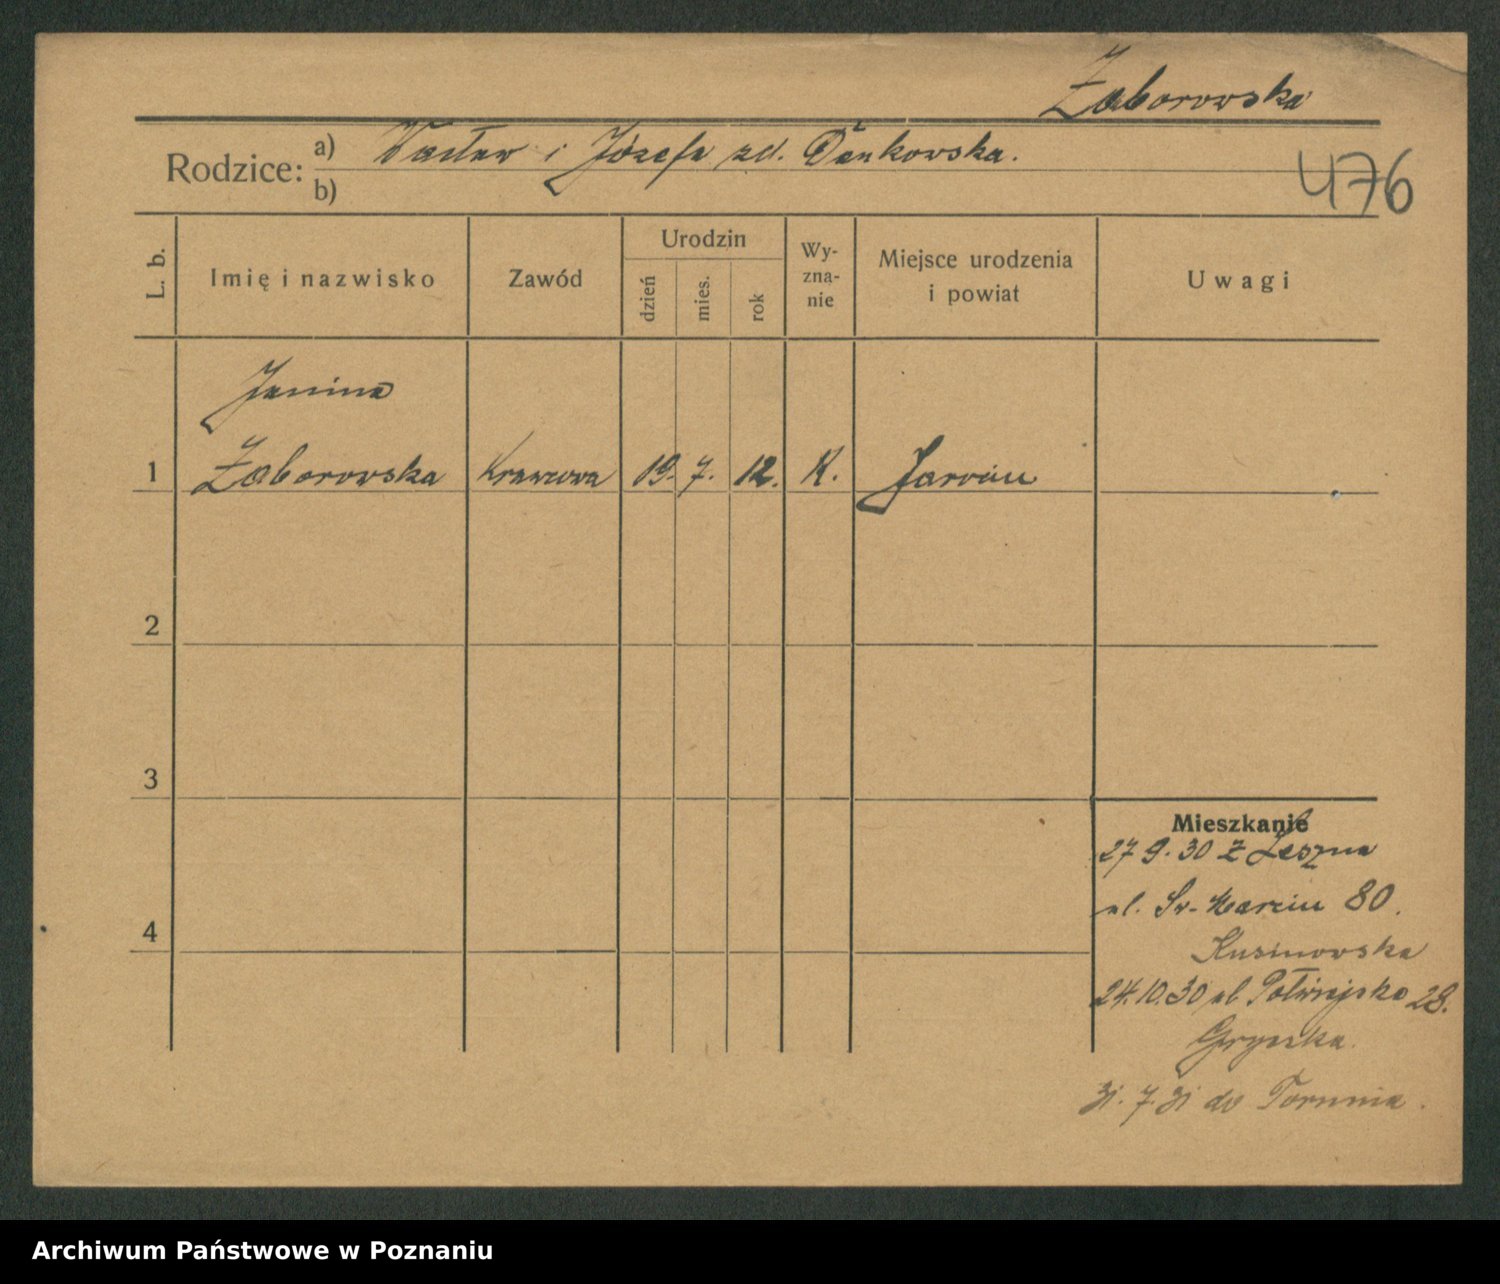 Zaborowska
Rodzice: a) Wacław i Józefa zd. Dankowska.
b)
476
L. b.
Imię i nazwisko
Zawód
Urodzin
dzień
mies.
rok
Wy-
zna-
nie
Miejsce urodzenia
i powiat
Uwagi
Janina
1 Zaborowska Krawcowa 19. 7. 12. K. Jarocin
2
3
4
Mieszkanie
27 9. 30 z Leszna
ul. Św. Marcin 80.
24.10.30 ul Półwiejska 28.
31. 7. 31 do Torunia.
Archiwum Państwowe w Poznaniu